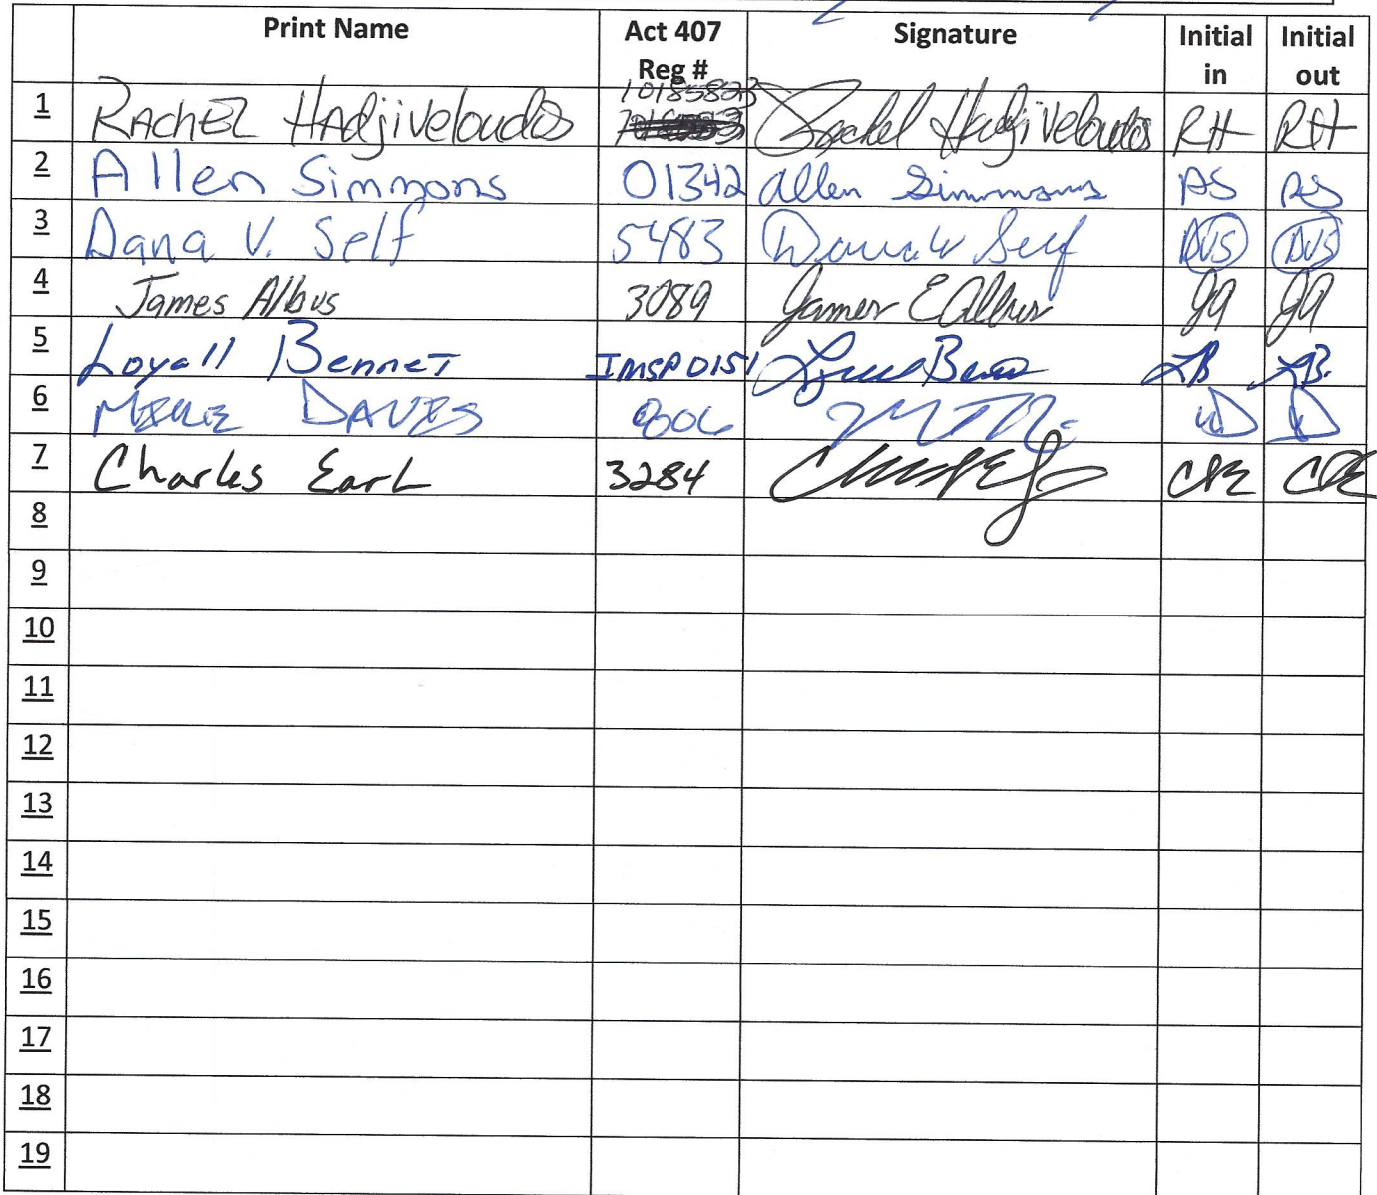 Print Name Act 407 Reg # Signature Initial in Initial out
1 RACHEL HAdjiveloudis 10185823 Rachel Hadjiveloudis RH RH
2 Allen Simmons 01342 Allen Simmons AS AS
3 Dana V. Self 5483 Dana V Self DVS DVS
4 James Albus 3089 James E Albus JA JA
5 Loyall BenneT IMSP0151 LB LB.
6 MIKE DAVIS
7 Charles Earl 3284 CRE CRE
8
9
10
11
12
13
14
15
16
17
18
19